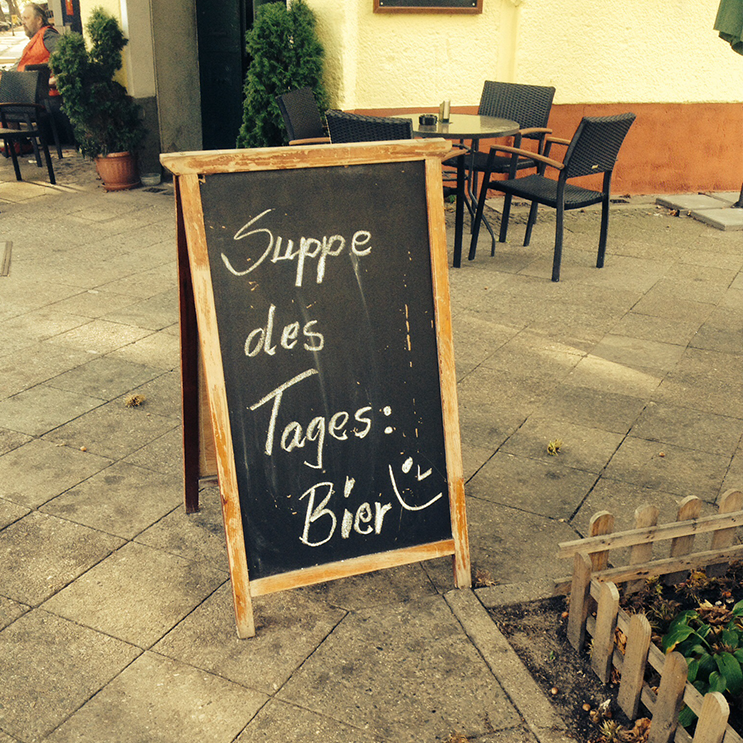 Suppe
des
Tages:
Bier